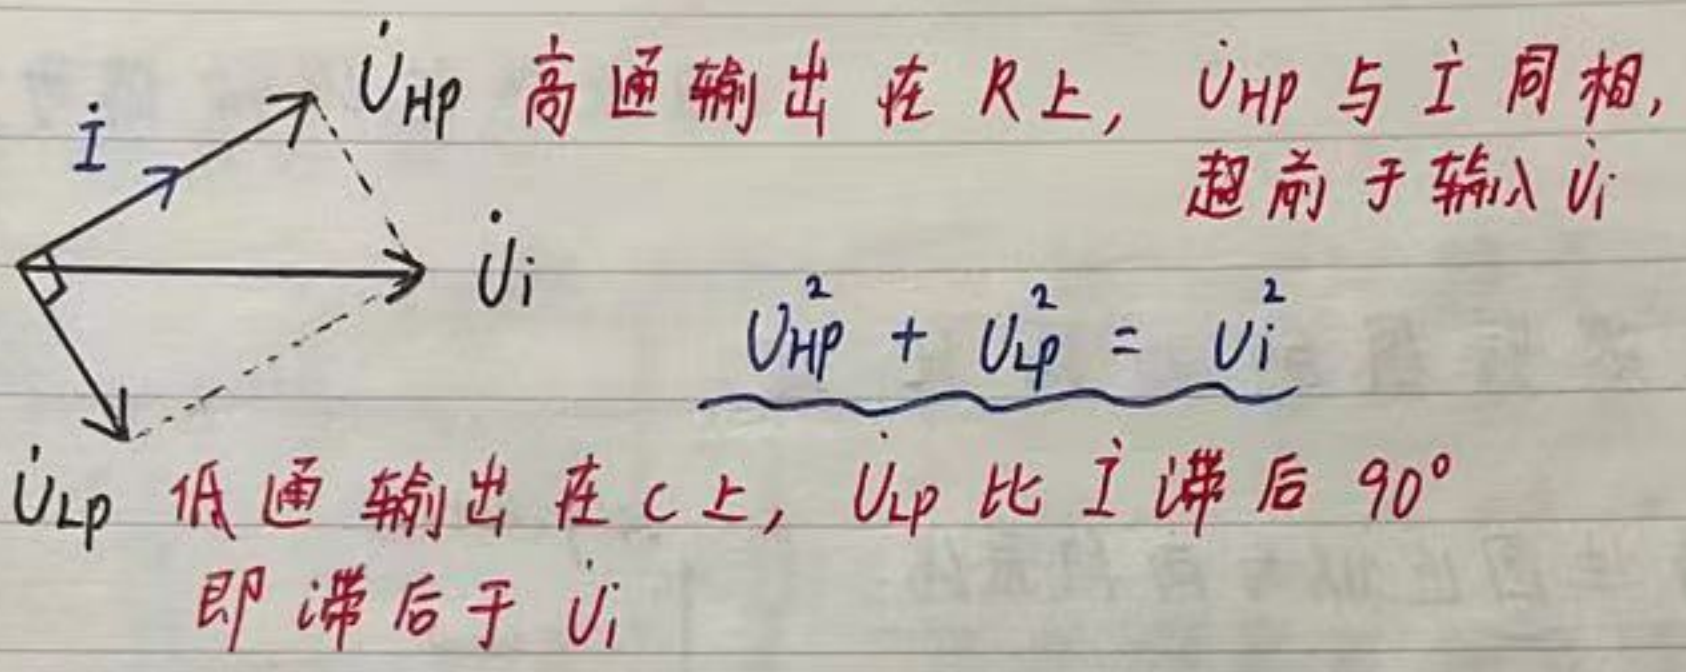 U̇HP 高通输出在R上, U̇HP与İ同相,
İ
超前于输入U̇i
U̇i
U²HP + U²LP = Ui²
U̇LP 低通输出在C上, U̇LP比İ滞后90°
即滞后于U̇i